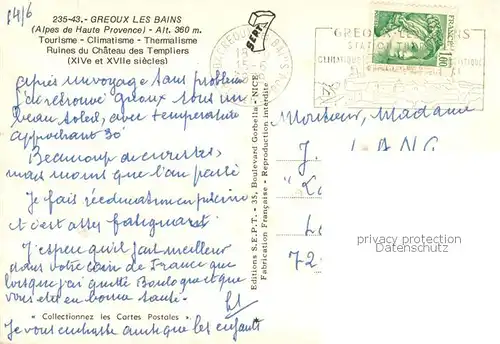 14/6
235-43.- GREOUX LES BAINS
(Alpes de Haute Provence) - Alt. 360 m.
Tourisme - Climatisme - Thermalisme
Ruines du Château des Templiers
(XIVe et XVIIe siècles)
après un voyage sans problème
j'ai retrouvé Gréoux sous un
beau soleil, avec température
approchant 30°
Beaucoup de curistes,
mais moins que l'an passé
Je fais rééducation en piscine
et c'est assez fatiguant.
J'espère qu'il fait meilleur
dans votre coin de France que
lorsque j'ai quitté Boulogne et que
vous êtes en bonne santé.
Je vous embrasse ainsi que les enfants
« Collectionnez les Cartes Postales »
Editions S.E.P.T. - 35, Boulevard Gorbella - NICE
Fabrication Française - Reproduction interdite
SEPT
GREOUX-LES-BAINS
STATION
FRANCE
1,00
Monsieur, Madame
J. LANG
72
privacy protection
Datenschutz